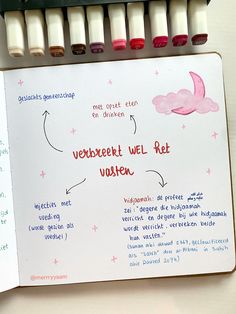 geslachtsgemeenschap
met opzet eten
en drinken
verbreekt WEL het
vasten
injecties met
voeding
(wordt gezien als
voedsel)
hidjaamah: de profeet ﷺ
zei: "degene die hidjaamah
verricht en degene bij wie hidjaamah
wordt verricht, verbreken beide
hun vasten."
(sunan abi dawud 2367, geclassificeerd
als "sahih" door al-Albani in Sahih
Abie Dawoed 2074)
@merryyaam